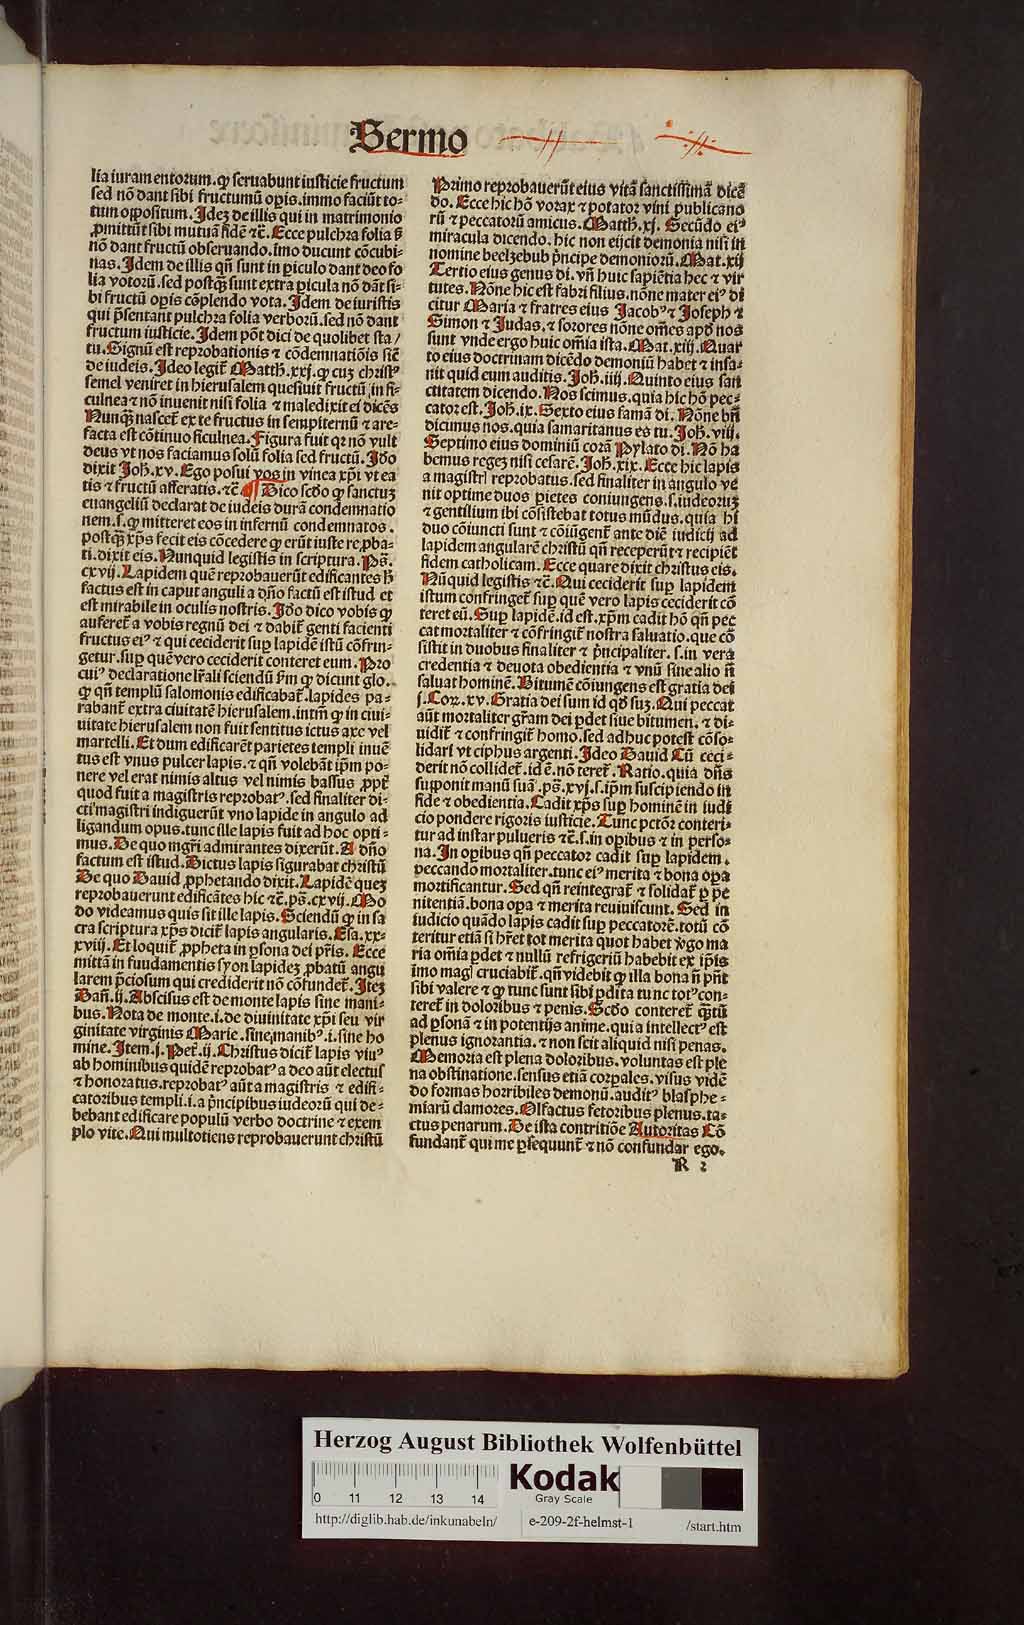 Sermo
lia iuramentorum. ꝙ seruabunt iusticie fructum
sed nō dant sibi fructumū oꝑis. immo faciūt to-
tum oꝑpositum. Idez de illis qui in matrimonio
ꝓmittūt sibi mutuā fidē ⁊c̄. Ecce pulchra folia ß
nō dant fructū obseruando. imo ducunt cōcubi-
nas. Idem de illis qn̄ sunt in ꝑiculo dant deo fo
lia votorū. sed postꝙ̄ sunt extra ꝑicula nō dāt si-
bi fructū oꝑis cōplendo vota. Idem de iuristis
qui p̄sentant pulchra folia verborū. sed nō dant
fructum iusticie. Idem pōt dici de quolibet sta/
tu. Signū est reprobationis ⁊ cōdemnatiōis sic̄
de iudeis. Ideo legit᷑ Matth. xxj. ꝙ cuz christꝰ
semel veniret in hierusalem quesiuit fructū in fi-
culnea ⁊ nō inuenit nisi folia ⁊ maledixit ei dicēs
Nunꝙ̄ nascet᷑ ex te fructus in sempiternū ⁊ are-
facta est cōtinuo ficulnea. Figura fuit qꝛ nō vult
deus vt nos faciamus solū folia sed fructū. Idō
dixit Joh. xv. Ego posui vos in vinea xp̄i vt ea
tis ⁊ fructū afferatis. ⁊c̄ ¶ Dico scdo ꝙ sanctuz
euangeliū declarat de iudeis durā condemnatio
nem. s. ꝙ mitteret eos in infernū condemnatos.
postꝙ̄ xp̄s fecit eis cōcedere ꝙ erūt iuste reꝓba-
ti. dixit eis. Nunquid legistis in scriptura. Ps̄.
cxvij. Lapidem quē reprobauerūt edificantes h̄
factus est in caput anguli a dn̄o factū est istud et
est mirabile in oculis nostris. Idō dico vobis ꝙ
auferet᷑ a vobis regnū dei ⁊ dabit᷑ genti facienti
fructus eiꝰ ⁊ qui ceciderit suꝑ lapidē istū cōfrin-
getur. suꝑ quē vero ceciderit conteret eum. Pro
cuiꝰ declaratione lr̄ali sciendū ßm ꝙ dicunt glo.
ꝙ qn̄ templū salomonis edificabat᷑. lapides pa-
rabant᷑ extra ciuitatē hierusalem. intm̄ ꝙ in ciui-
uitate hierusalem non fuit sentitus ictus axe vel
martelli. Et dum edificarēt parietes templi inuē
tus est vnus pulcer lapis. ⁊ qn̄ volebāt ip̄m po-
nere vel erat nimis altus vel nimis bassus ꝓpt᷑
quod fuit a magistris reprobatꝰ. sed finaliter di-
cti magistri indiguerūt vno lapide in angulo ad
ligandum opus. tunc ille lapis fuit ad hoc opti-
mus. De quo mgr̄i admirantes dixerūt. A dn̄o
factum est istud. Dictus lapis figurabat christū
De quo Dauid ꝓphetando dixit. Lapidē quez
reprobauerunt edificātes hic ⁊c̄. ps̄. cxvij. Mo
do videamus quis sit ille lapis. Sciendū ꝙ in sa
cra scriptura xp̄s dicit᷑ lapis angularis. Esa. xx-
xviij. Et loquit᷑ ꝓpheta in ꝑsona dei pr̄is. Ecce
mittā in fuudamentis syon lapidez ꝓbatū angu
larem p̄ciosum qui crediderit nō cōfundet᷑. Itez
Dan̄. ij. Abscisus est de monte lapis sine mani-
bus. Nota de monte. i. de diuinitate xp̄i seu vir
ginitate virginis Marie. sine manibꝰ. i. sine ho
mine. Item. j. Pet̄. ij. Christus dicit᷑ lapis viuꝰ
ab hominibus quidē reprobatꝰ a deo aūt electus
⁊ honoratus. reprobatꝰ aūt a magistris ⁊ edifi-
catoribus templi. i. a p̄ncipibus iudeorū qui de-
bebant edificare populū verbo doctrine ⁊ exem
plo vite. Qui multotiens reprobauerunt christū
Primo reprobauerūt eius vitā sanctissimā dicē
do. Ecce hic hō vorax ⁊ potator vini publicano
rū ⁊ peccatorū amicus. Matth. xj. Secūdo eiꝰ
miracula dicendo. hic non eijcit demonia nisi in
nomine beelzebub p̄ncipe demoniorū. Mat. xij
Tertio eius genus di. vn̄ huic sapiētia hec ⁊ vir
tutes. Nōne hic est fabri filius. nōne mater eiꝰ di
citur Maria ⁊ fratres eius Jacobꝰ ⁊ Joseph ⁊
Simon ⁊ Judas. ⁊ sorores nōne om̄es apd̄ nos
sunt vnde ergo huic om̄ia ista. Mat. xiij. Quar
to eius doctrinam dicēdo demoniū habet ⁊ insa-
nit quid eum auditis. Joh. iiij. Quinto eius san
ctitatem dicendo. Nos scimus. quia hic hō pec-
cator est. Joh. ix. Sexto eius famā di. Nōne bn̄
dicimus nos. quia samaritanus es tu. Joh. viij.
Septimo eius dominiū corā Pylato di. Nō ha
bemus regez nisi cesarē. Joh. xix. Ecce hic lapis
a magistr̄ reprobatus. sed finaliter in angulo ve
nit optime duos ꝑietes coniungens. s. iudeoruz
⁊ gentilium ibi cōsistebat totus mūdus. quia hi
duo cōiuncti sunt ⁊ cōiūgent᷑ ante diē iudicij ad
lapidem angularē christū qn̄ receperūt ⁊ recipiēt
fidem catholicam. Ecce quare dixit christus eis.
Nūquid legistis ⁊c̄. Qui ceciderit suꝑ lapidem
istum confringet᷑ suꝑ quē vero lapis ceciderit cō
teret eū. Suꝑ lapidē. id est. xp̄m cadit hō qn̄ pec
cat mortaliter ⁊ cōfringit᷑ nostra saluatio. que cō
sistit in duobus finaliter ⁊ p̄ncipaliter. s. in vera
credentia ⁊ deuota obedientia ⁊ vnū sine alio n̄
saluat hominē. Bitumē cōiungens est gratia dei
j. Cor. xv. Gratia dei sum id qd̄ suz. Qui peccat
aūt mortaliter gr̄am dei ꝑdet siue bitumen. ⁊ di-
uidit᷑ ⁊ confringit᷑ homo. sed adhuc potest cōso-
lidari vt ciphus argenti. Ideo Dauid Cū ceci-
derit nō collidet᷑. id ē. nō teret᷑. Ratio. quia dn̄s
suꝑponit manū suā. ps̄. xvj. s. ip̄m suscipiendo in
fide ⁊ obedientia. Cadit xp̄s suꝑ hominē in iudi
cio pondere rigoris iusticie. Tunc pctōr conteri-
tur ad instar pulueris ⁊c̄. s. in oꝑibus ⁊ in perso-
na. In oꝑibus qn̄ peccator cadit suꝑ lapidem.
peccando mortaliter. tunc eiꝰ merita ⁊ bona oꝑa
mortificantur. Sed qn̄ reintegrat᷑ ⁊ solidat᷑ ꝑ pe
nitentiā. bona oꝑa ⁊ merita reuiuiscunt. Sed in
iudicio quādo lapis cadit suꝑ peccatorē. totū cō
teritur etiā si hr̄et tot merita quot habet ꝟgo ma
ria om̄ia ꝑdet ⁊ nullū refrigeriū habebit ex ip̄is
īmo maḡ cruciabit᷑. qn̄ videbit ꝙ illa bona n̄ pn̄t
sibi valere ⁊ ꝙ tunc sunt sibi ꝑdita tunc totꝰ con-
teret᷑ in doloribus ⁊ penis. Scdo conteret᷑ ꝙ̄tū
ad ꝑsonā ⁊ in potentijs anime. quia intellectꝰ est
plenus ignorantia. ⁊ non scit aliquid nisi penas.
Memoria est plena doloribus. voluntas est ple
na obstinatione. sensus etiā corꝑales. visus vidē
do formas horribiles demonū. auditꝰ blasphe-
miarū clamores. Olfactus fetoribus plenus. ta-
ctus penarum. De ista contritiōe Autoritas Cō
fundant᷑ qui me ꝑsequunt᷑ ⁊ nō confundar ego.
R 2
Herzog August Bibliothek Wolfenbüttel
0 11 12 13 14
Kodak
Gray Scale
http://diglib.hab.de/inkunabeln/ e-209-2f-helmst-1 /start.htm